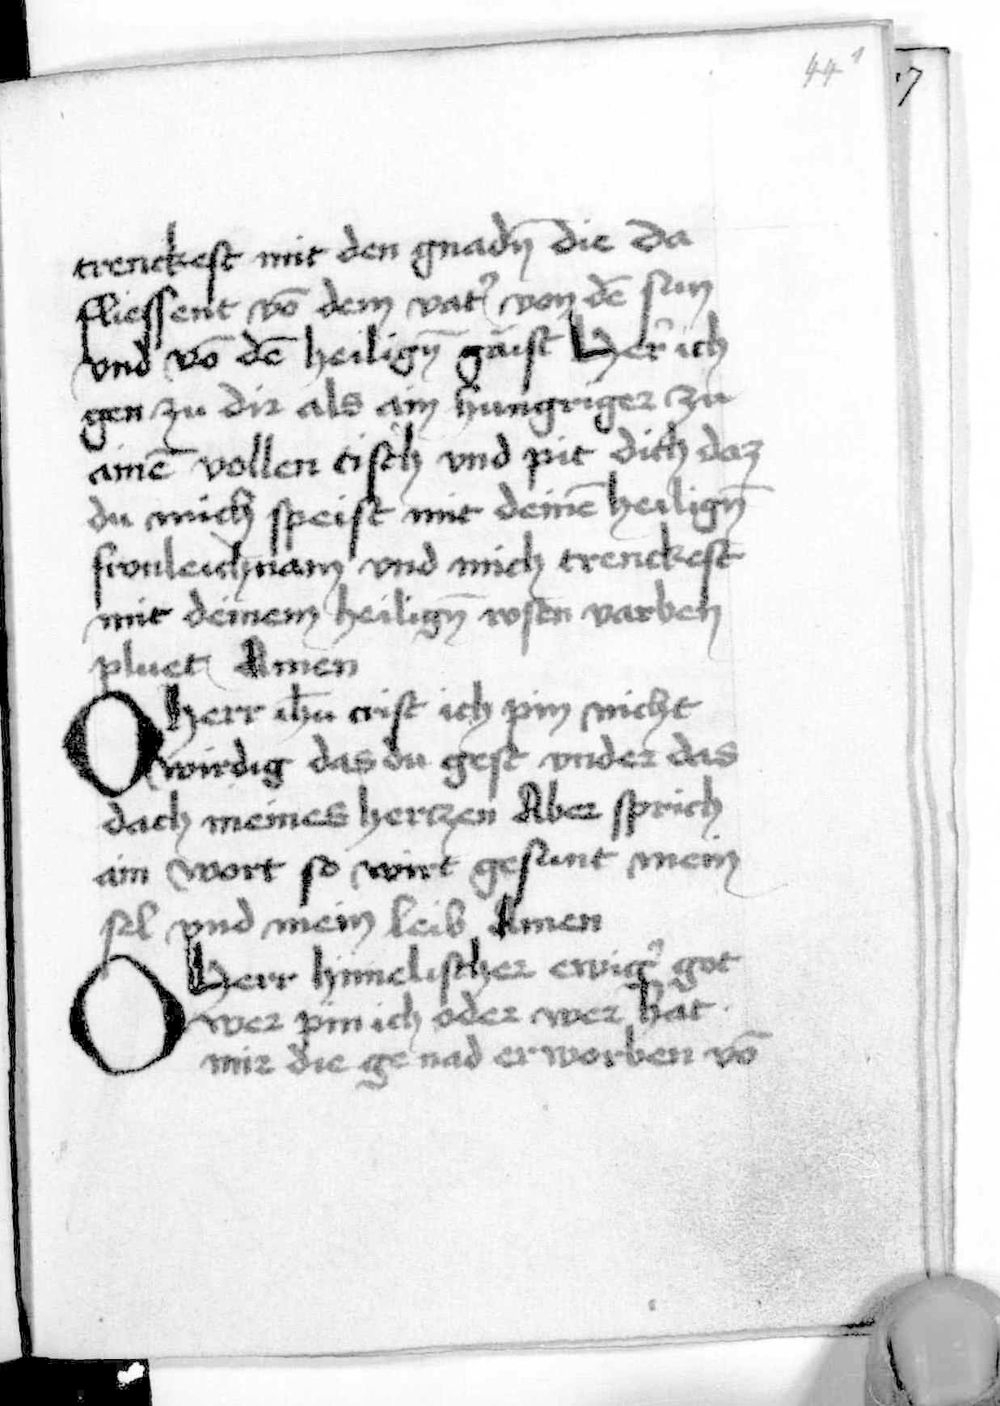 44 1
7
trenckest mit den gnadn̄ die da
fliessent vō dem vatʾ von dē sun
vnd vō dē heilign̄ gaist Herʾ ich
gen zu dir als ain hungriger zu
ainē vollen tisch vnd pit dich daz
du mich speist mit deinē heilign̄
fronleichnam vnd mich trenckest
mit deinem heilign̄ rosen varben
pluet Amen
O herr ih̄u crist ich pin nicht
wirdig das du gest vnder das
dach meines hertzen Aber sprich
ain wort so wirt gesunt mein
sel vnd mein leib Amen
O Herr himelischer ewigʾ got
wer pin ich oder wer hat
mir die ge nad erworben vō